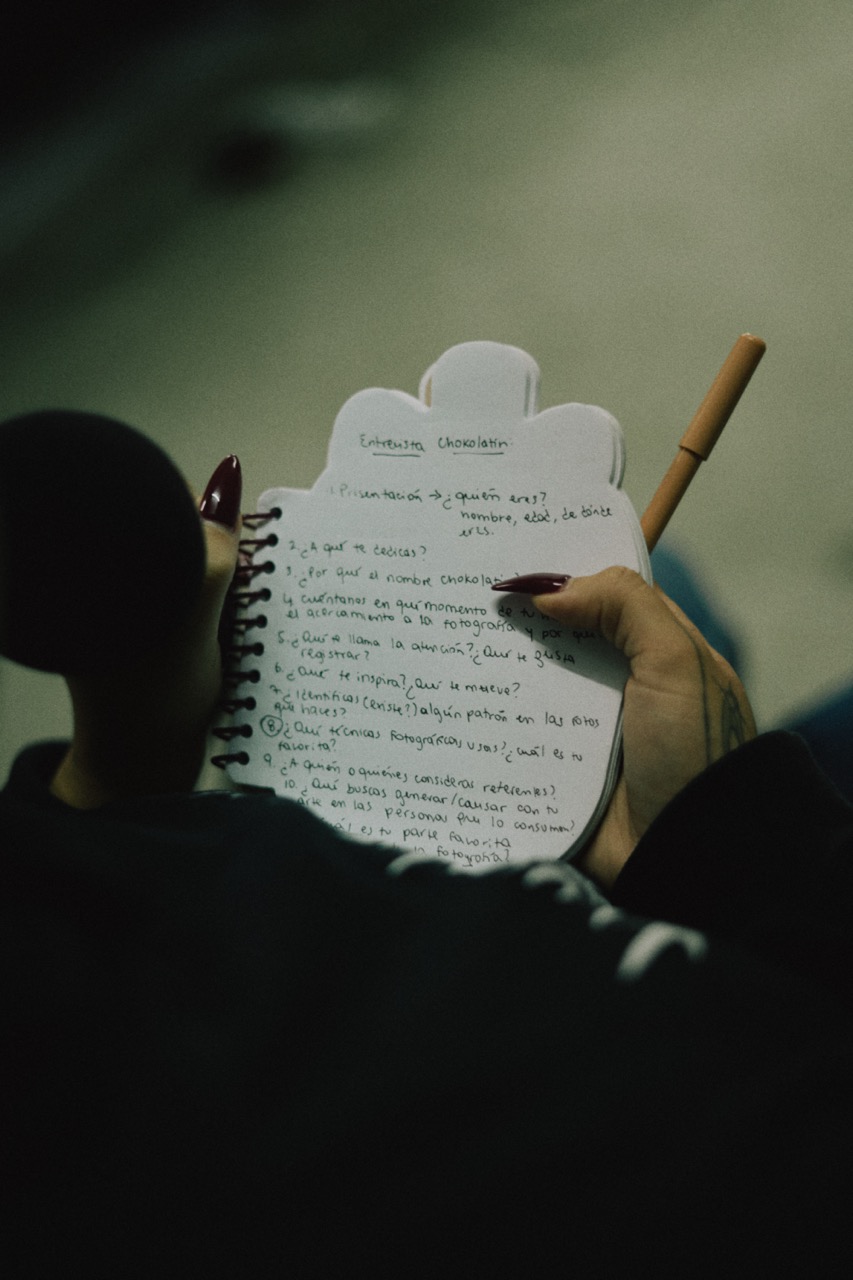 Entrevista Chokolatin:
1. Presentación → ¿quién eres?
nombre, edad, de dónde
eres.
2. ¿A qué te dedicas?
3. ¿Por qué el nombre chokolati
4. cuéntanos en qué momento de tu
el acercamiento a la fotografía y por qué
5. ¿Qué te llama la atención? ¿Qué te gusta
registrar?
6. ¿Qué te inspira? ¿Qué te mueve?
7. ¿Identificas (existe?) algún patrón en las fotos
que haces?
8. ¿Qué técnicas fotográficas usas? ¿cuál es tu
favorita?
9. ¿A quién o quiénes consideras referentes?
10. ¿Qué buscas generar/causar con tu
arte en las personas que lo consumen?
es tu parte favorita
la fotografía?